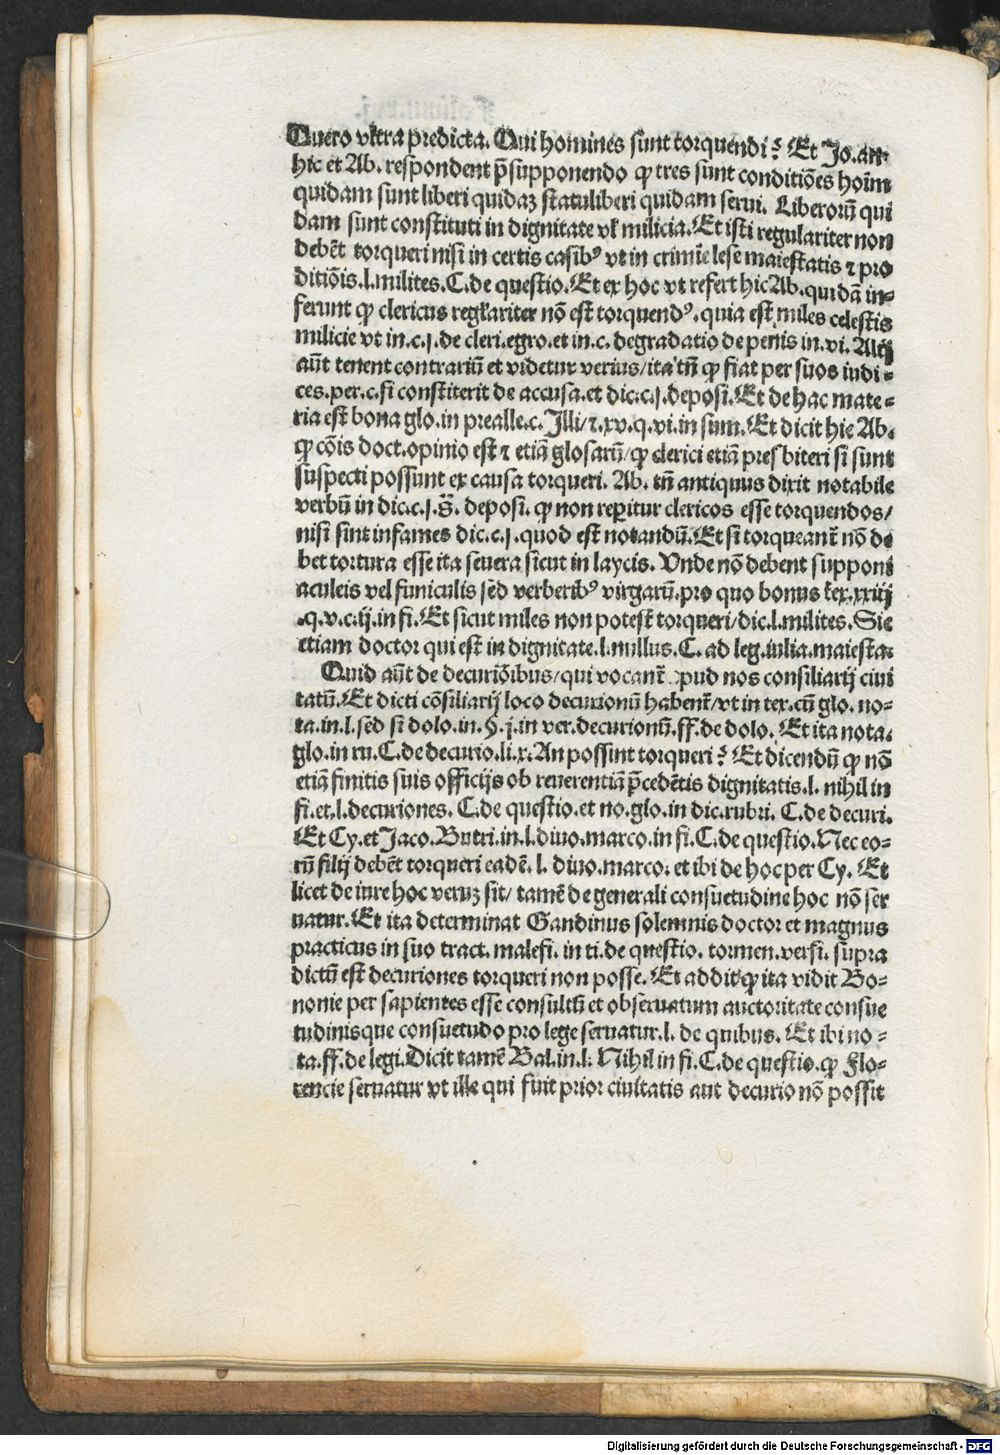 Quero vltra predicta. Qui homines sunt torquendi? Et Jo.an.
hic et Ab. respondent p̄supponendo ꝙ tres sunt conditiōes hoīm
quidam sunt liberi quidaꝫ statuliberi quidam serui. Liberorū qui
dam sunt constituti in dignitate vł milicia. Et isti regulariter non
debēt torqueri nisi in certis casibꝰ vt in crimīe lese maiestatis ⁊ pro
ditiōis.l.milites.C.de questio. Et ex hoc vt refert hic Ab. quidā in⸗
ferunt ꝙ clericus regłariter nō est torquendꝰ. quia est miles celestis
milicie vt in.c.j.de cleri.egro.et in.c. degradatio de penis in.vi. Alij
aūt tenent contrariū et videtur verius/ita tn̄ ꝙ fiat per suos iudi⸗
ces.per.c.si constiterit de accusa.et dic.c.j.deposi. Et de hac mate⸗
ria est bona glo.in prealle.c. Illi/⁊.xv.q.vi.in sum. Et dicit hic Ab.
ꝙ cōis doct.opinio est ⁊ etiā glosarū/ꝙ clerici etiā presbiteri si sunt
suspecti possunt ex causa torqueri. Ab. tn̄ antiquus dixit notabile
verbū in dic.c.j. deposi. ꝙ non reperitur clericos esse torquendos/
nisi sint infames dic.c.j.quod est notandū. Et si torqueanť nō de
bet tortura esse ita seuera sicut in laycis. Vnde nō debent supponi
aculeis vel funiculis sed verberibꝰ virgarū.pro quo bonus tex.xxiij
.q.v.c.ij.in fi. Et sicut miles non potest torqueri/dic.l.milites. Sic
etiam doctor qui est in dignitate.l.nullus.C. ad leg.iulia.maiesta.
Quid aūt de decuriōibus/qui vocanť apud nos consiliarij ciui
tatū. Et dicti cōsiliarij loco decurionū habenť/vt in tex.cū glo. no⸗
ta.in.l.sed si dolo.in.§.j.in ver.decurionū.ff.de dolo. Et ita nota.
glo.in ru.C.de decurio.li.x. An possint torqueri? Et dicendū ꝙ nō
etiā finitis suis officijs ob reuerentiā p̄cedētis dignitatis.l. nihil in
fi.et.l.decuriones. C.de questio.et no.glo.in dic.rubri. C.de decuri.
Et Cy.et Jaco. Butri.in.l.diuo.marco.in fi.C.de questio. Nec eo⸗
rū filij debēt torqueri eadē. l. diuo.marco. et ibi de hoc per Cy. Et
licet de iure hoc veruꝫ sit/ tamē de generali consuetudine hoc nō ser
uatur. Et ita determinat Gandinus solemnis doctor et magnus
practicus in suo tract. malefi. in ti.de questio. tormen.versi. supra
dictū est decuriones torqueri non posse. Et addit ꝙ ita vidit Bo⸗
nonie per sapientes esse consultū et obseruatum auctoritate consue
tudinisque consuetudo pro lege seruatur.l. de quibus. Et ibi no⸗
ta.ff.de legi. Dicit tamē Bal.in.l. Nihil in fi.C.de questio. ꝙ Flo⸗
rencie seruatur vt ille qui fuit prior ciuitatis aut decurio nō possit
Digitalisierung gefördert durch die Deutsche Forschungsgemeinschaft - DFG